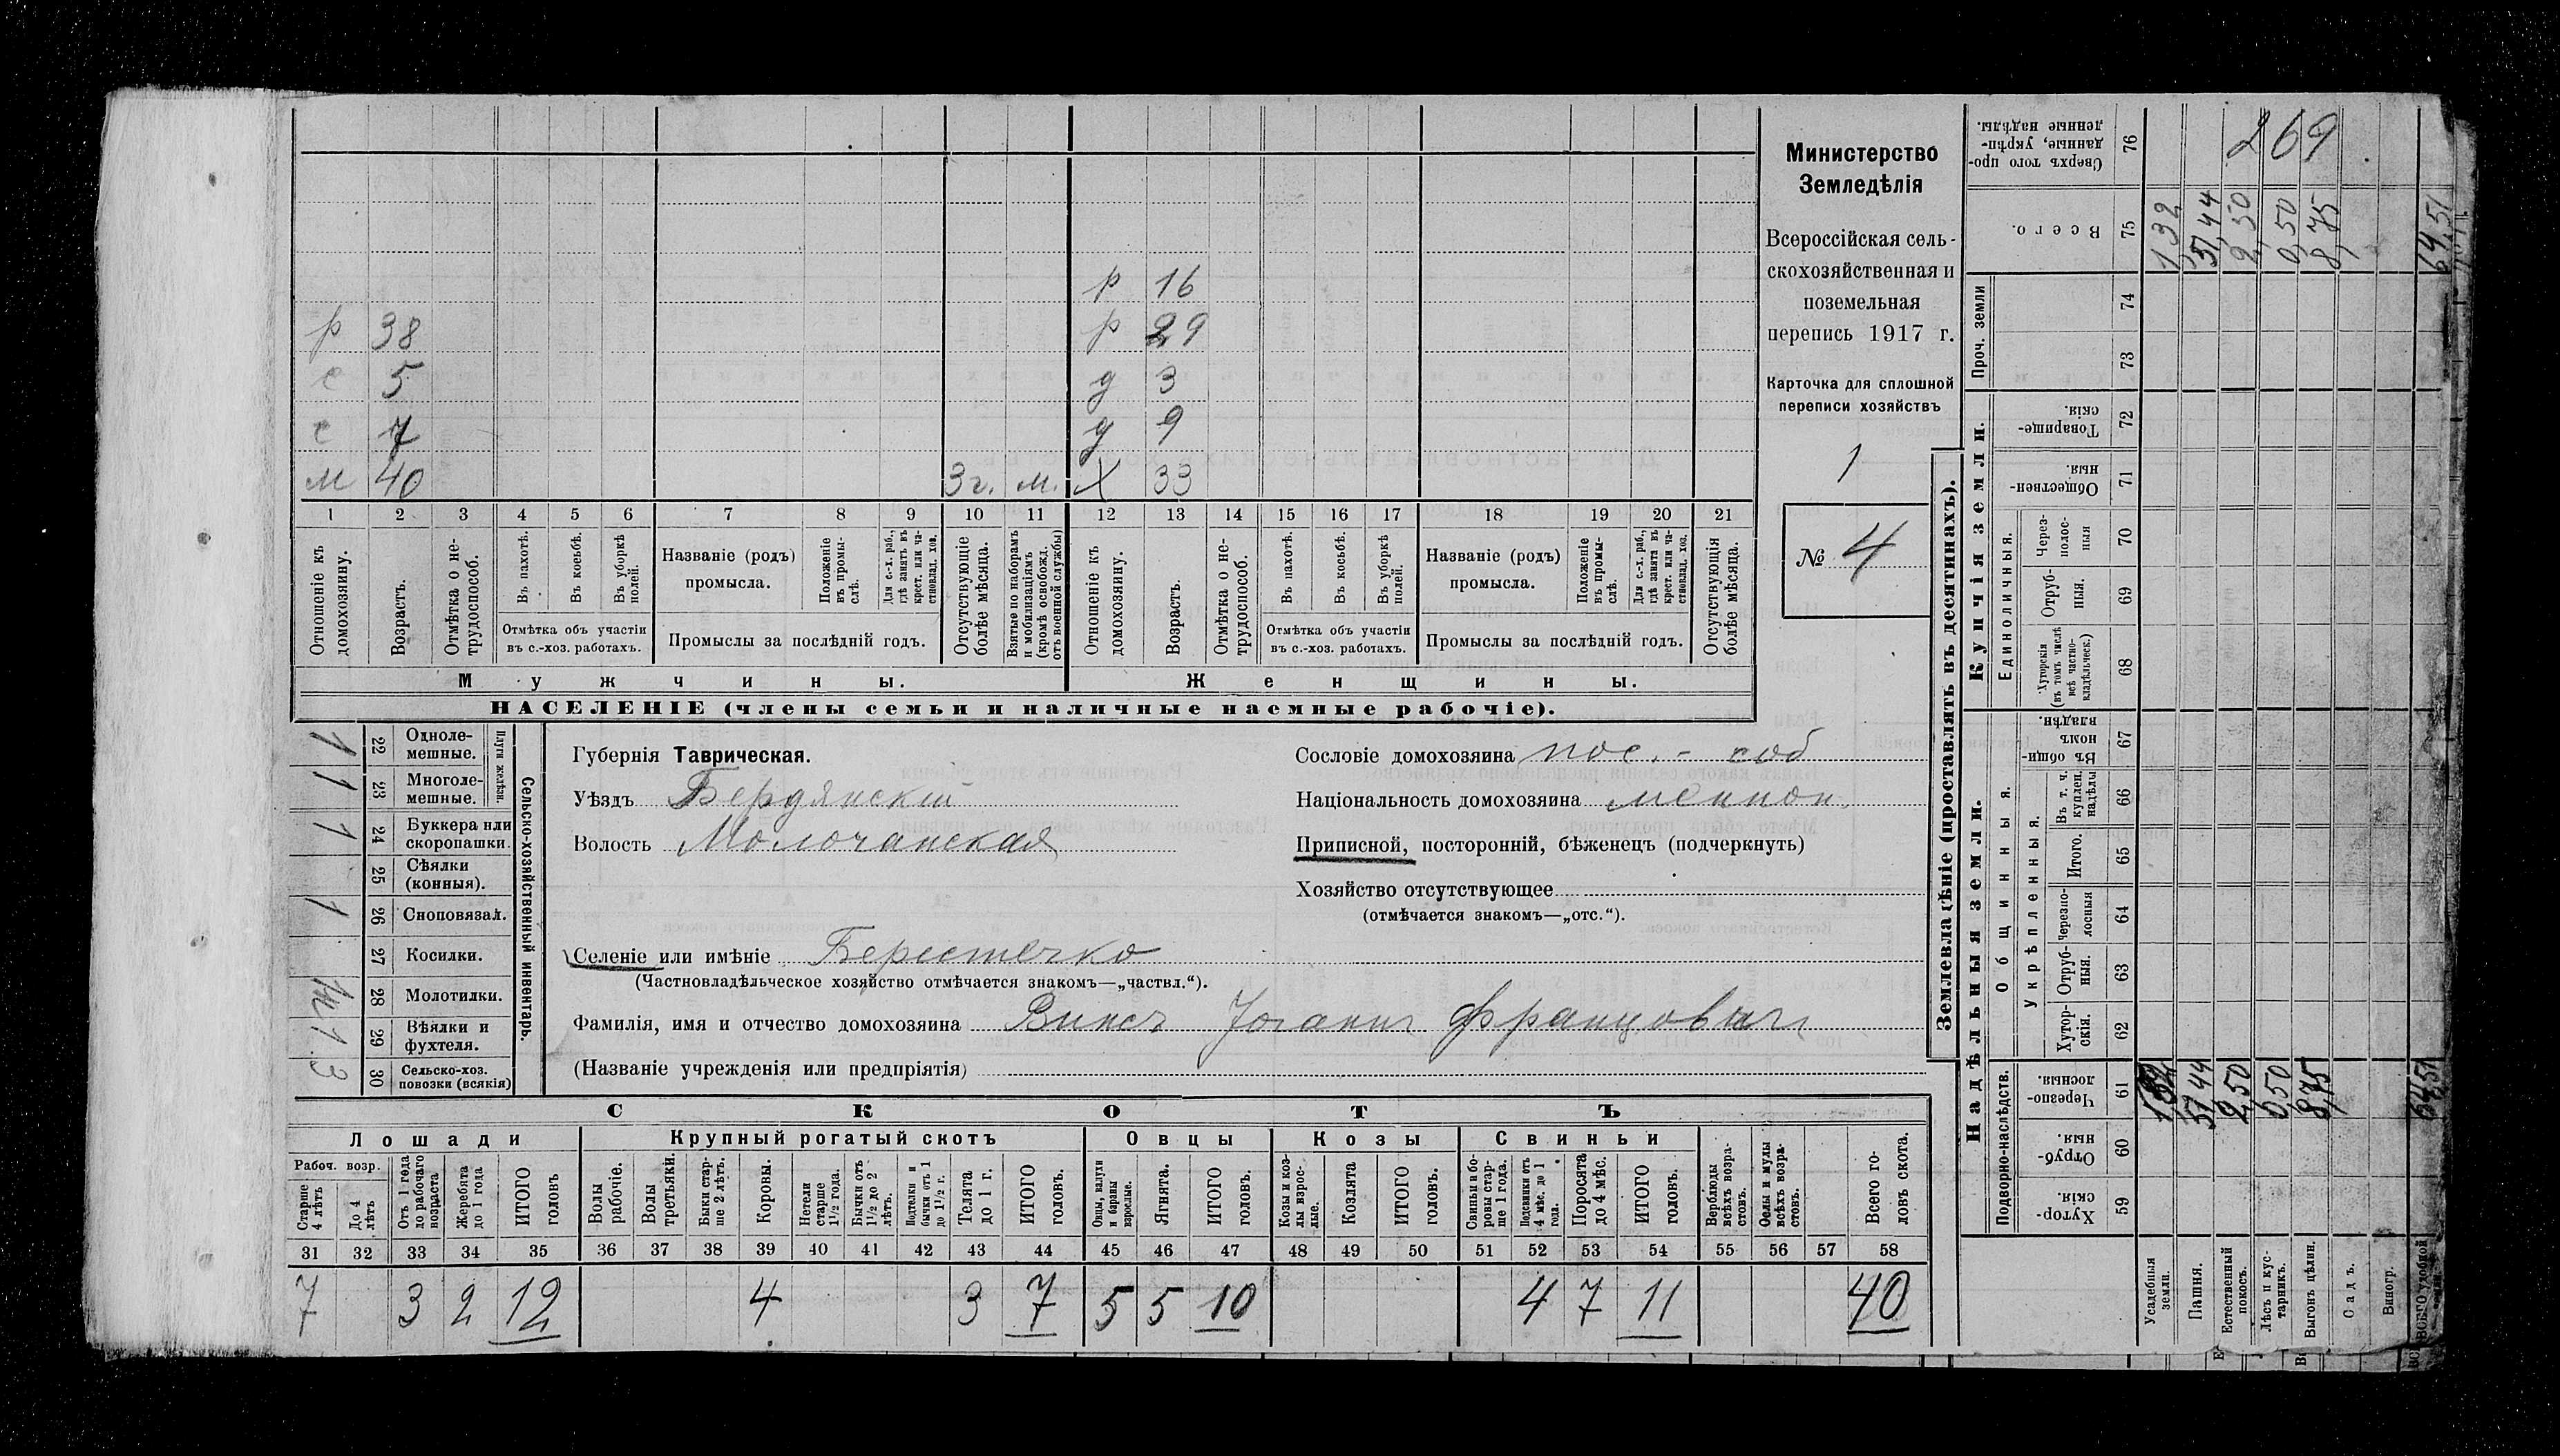 р 16
р 38 р 29
с 5 д 3
с 7 д 9
м 40 3г. м. х 33
1 2 3 4 5 6 7 8 9 10 11 12 13 14 15 16 17 18 19 20 21
Отношеніе къ домохозяину.
Возрастъ.
Отмѣтка о не-трудоспособ.
Въ пахотѣ.
Въ косьбѣ.
Въ уборкѣ полей.
Отмѣтка объ участіи
въ с.-хоз. работахъ.
Названіе (родъ)
промысла.
Положеніе въ промы-слѣ.
Для с.-х. раб., гдѣ занятъ въ крест. или ча-стновлад. хоз.
Промыслы за послѣдній годъ.
Отсутствующіе болѣе мѣсяца.
Взятые по наборамъ и мобилизаціямъ (кромѣ освобожд. отъ военной службы)
Отношеніе къ домохозяину.
Возрастъ.
Отмѣтка о не-трудоспособ.
Въ пахотѣ.
Въ косьбѣ.
Въ уборкѣ полей.
Отмѣтка объ участіи
въ с.-хоз. работахъ.
Названіе (родъ)
промысла.
Положеніе въ промы-слѣ.
Для с.-х. раб., гдѣ занята въ крест. или ча-стновлад. хоз.
Промыслы за послѣдній годъ.
Отсутствующія болѣе мѣсяца.
Мужчины. Женщины.
НАСЕЛЕНІЕ (члены семьи и наличные наемные рабочіе).
Министерство
Земледѣлія
Всероссійская сель-
скохозяйственная и
поземельная
перепись 1917 г.
Карточка для сплошной
переписи хозяйствъ
1
№ 4
Сельско-хозяйственный инвентарь.
Плуги желѣзн.
1 22 Одноле-мешные.
1 23 Многоле-мешные.
1 24 Буккера или скоропашки.
25 Сѣялки (конныя).
1 26 Сноповязал.
27 Косилки.
28 Молотилки.
1 29 Вѣялки и фухтеля.
3 30 Сельско-хоз. повозки (всякія)
Губернія Таврическая.
Уѣздъ Бердянскій
Волость Молочанская
Сословіе домохозяина пос. - соб
Національность домохозяина меннон.
Приписной, посторонній, бѣженецъ (подчеркнуть)
Хозяйство отсутствующее
(отмѣчается знакомъ—„отс.“).
Селеніе или имѣніе Берестечко
(Частновладѣльческое хозяйство отмѣчается знакомъ—„частвл.“).
Фамилія, имя и отчество домохозяина Винсъ Іоганнъ Францовичъ
(Названіе учрежденія или предпріятія)
СКОТЪ
Лошади Крупный рогатый скотъ Овцы Козы Свиньи
Рабоч. возр.
Старше 4 лѣтъ
До 4 лѣтъ
Отъ 1 года до рабочаго возраста
Жеребята до 1 года
ИТОГО головъ
Волы рабочіе.
Волы третьяки.
Быки стар-ше 2 лѣтъ.
Коровы.
Нетели старше 1½ года.
Бычки отъ 1½ до 2 лѣтъ.
Подтелки и бычки отъ 1 до 1½ г.
Телята до 1 г.
ИТОГО головъ.
Овцы, валухи и бараны взрослые.
Ягнята.
ИТОГО головъ.
Козы и коз-лы взрос-лые.
Козлята
ИТОГО головъ.
Свиньи и бо-ровы стар-ше 1 года.
Подсвинки отъ 4 мѣс. до 1 года.
Поросята до 4 мѣс.
ИТОГО головъ.
Верблюды всѣхъ возра-стовъ.
Ослы и мулы всѣхъ возра-стовъ.
Всего го-ловъ скота.
31 32 33 34 35 36 37 38 39 40 41 42 43 44 45 46 47 48 49 50 51 52 53 54 55 56 57 58
7 3 2 12 4 3 7 5 5 10 4 7 11 40
Землевладѣніе (проставлять въ десятинахъ).
Надѣльныя земли. Купчія земли.
Подворно-наслѣдств.
Общинныя.
Укрѣпленныя.
Единоличныя.
Проч. земли
Сверхъ того про-данные, укрѣп-ленные надѣлы. 76 269
Всего. 75 1,32 51,44 2,50 0,50 8,75 64,51
74
73
Товарище-скія. 72
Обществен-ныя. 71
Через-полос-ныя 70
Отруб-ныя. 69
Хуторскія (въ томъ числѣ всѣ частно-владѣльческ.) 68
Въ общин-номъ владѣн. 67
Въ т. ч. куплен. надѣлы 66
Итого. 65
Черезпо-лосныя 64
Отруб-ныя. 63
Хутор-скія. 62
Черезпо-лосныя. 61 1,32 51,44 2,50 0,50 8,75 64,51
Отруб-ныя. 60
Хутор-скія. 59
Усадебныя земли.
Пашня.
Естественный покосъ.
Лѣсъ и кус-тарникъ.
Выгонъ цѣлин.
Садъ.
Виногр.